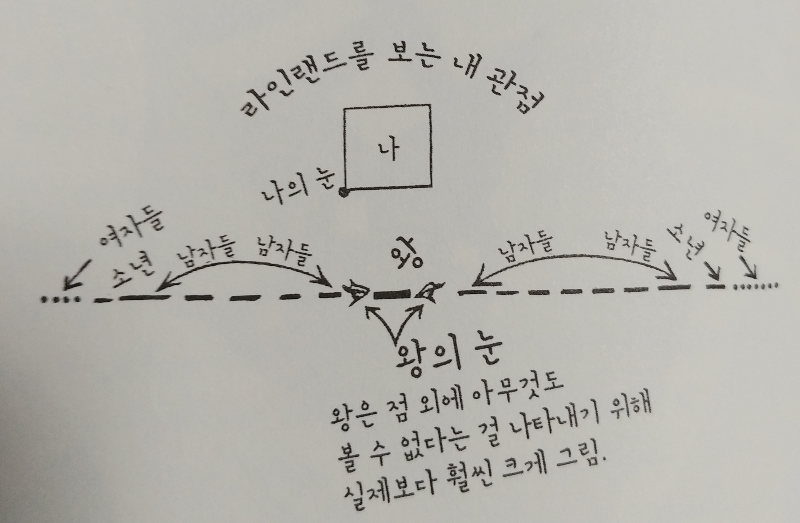 라인랜드를 보는 내 관점
나
나의 눈
여자들
소년
남자들
남자들
왕
남자들
남자들
소년
여자들
왕의 눈
왕은 점 외에 아무것도
볼 수 없다는 걸 나타내기 위해
실제보다 훨씬 크게 그림.